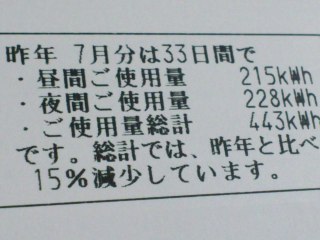 昨年 7月分は33日間で
・昼間ご使用量 215kWh
・夜間ご使用量 228kWh
・ご使用量総計 443kWh
です。総計では、昨年と比べ
15%減少しています。